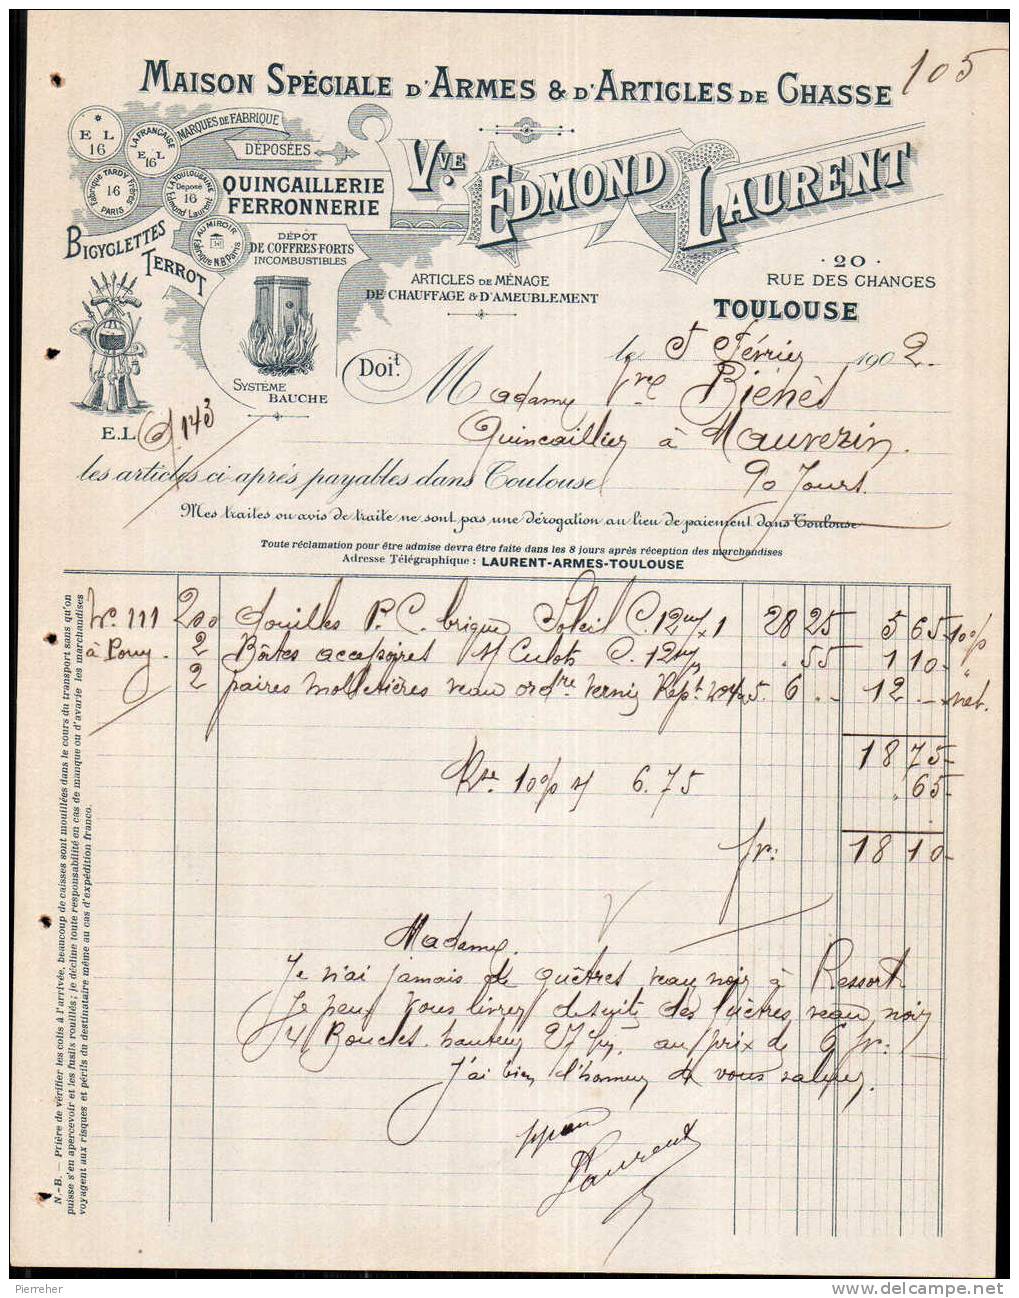 105
MAISON SPÉCIALE D'ARMES & D'ARTICLES DE CHASSE
Vve EDMOND LAURENT
MARQUES DE FABRIQUE
DÉPOSÉES
E L
16
LA FRANÇAISE
E L
16
Fabrique TARDY Frères
16
PARIS
LA TOULOUSAINE
Déposé
16
Edmond Laurent
AU MIROIR
Fabrique N.B Paris
QUINCAILLERIE
FERRONNERIE
BICYCLETTES
TERROT
DÉPÔT
DE COFFRES-FORTS
INCOMBUSTIBLES
SYSTÈME
BAUCHE
E.L.
ARTICLES DE MÉNAGE
DE CHAUFFAGE & D'AMEUBLEMENT
· 20 ·
RUE DES CHANGES
TOULOUSE
le 5 Février 1902.
Doit.
Madame Vve Biénès
Quincaillier à Mauvezin.
les articles ci après payables dans Toulouse 90 Jours.
Mes traites ou avis de traite ne sont pas une dérogation au lieu de paiement dans Toulouse
Toute réclamation pour être admise devra être faite dans les 8 jours après réception des marchandises
Adresse Télégraphique : LAURENT-ARMES-TOULOUSE
No 111 200 Douilles P. C. brique Soleil C. 12 28 25 5 65 10%
2 Boîtes accessoires Culots C. 12 . 55 1 10 "
2 paires molletières veau ordre vernis 6 .. 12 .. net.
18 75
Rse 10% s/ 6.75 . 65
fr: 18 10
Madame,
Je n'ai jamais de guêtres veau noir à Ressort
Je peux vous livrer desuite des guêtres veau noir
4 Boucles hauteur 27 c/m au prix de 6 fr:
J'ai bien l'honneur de vous saluer.
Laurent
N.-B. — Prière de vérifier les colis à l'arrivée, beaucoup de caisses sont mouillées dans le cours du transport sans qu'on
puisse s'en apercevoir et les fusils rouillés; je décline toute responsabilité en cas de manque ou d'avarie les marchandises
voyagent aux risques et périls du destinataire même au cas d'expédition franco.
Pierreher
delcampe.net